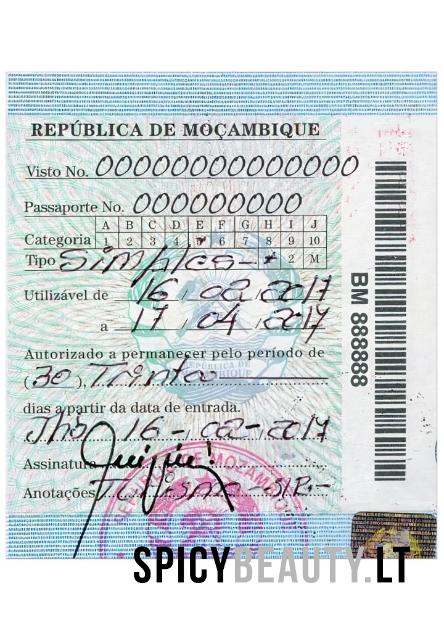 REPÚBLICA DE MOÇAMBIQUE
Visto No. 000000000000000
Passaporte No. 000000000
A B C D E F G H I J
Categoria 1 2 3 4 5 6 7 8 9 10
Tipo Simples 2 M
Utilizável de 16, 02, 2017
a 17, 04, 2017
Autorizado a permanecer pelo período de
(30), Trinta
dias a partir da data de entrada.
16-02-2017
Assinatura
Anotações
BM 888888
SPICYBEAUTY.LT